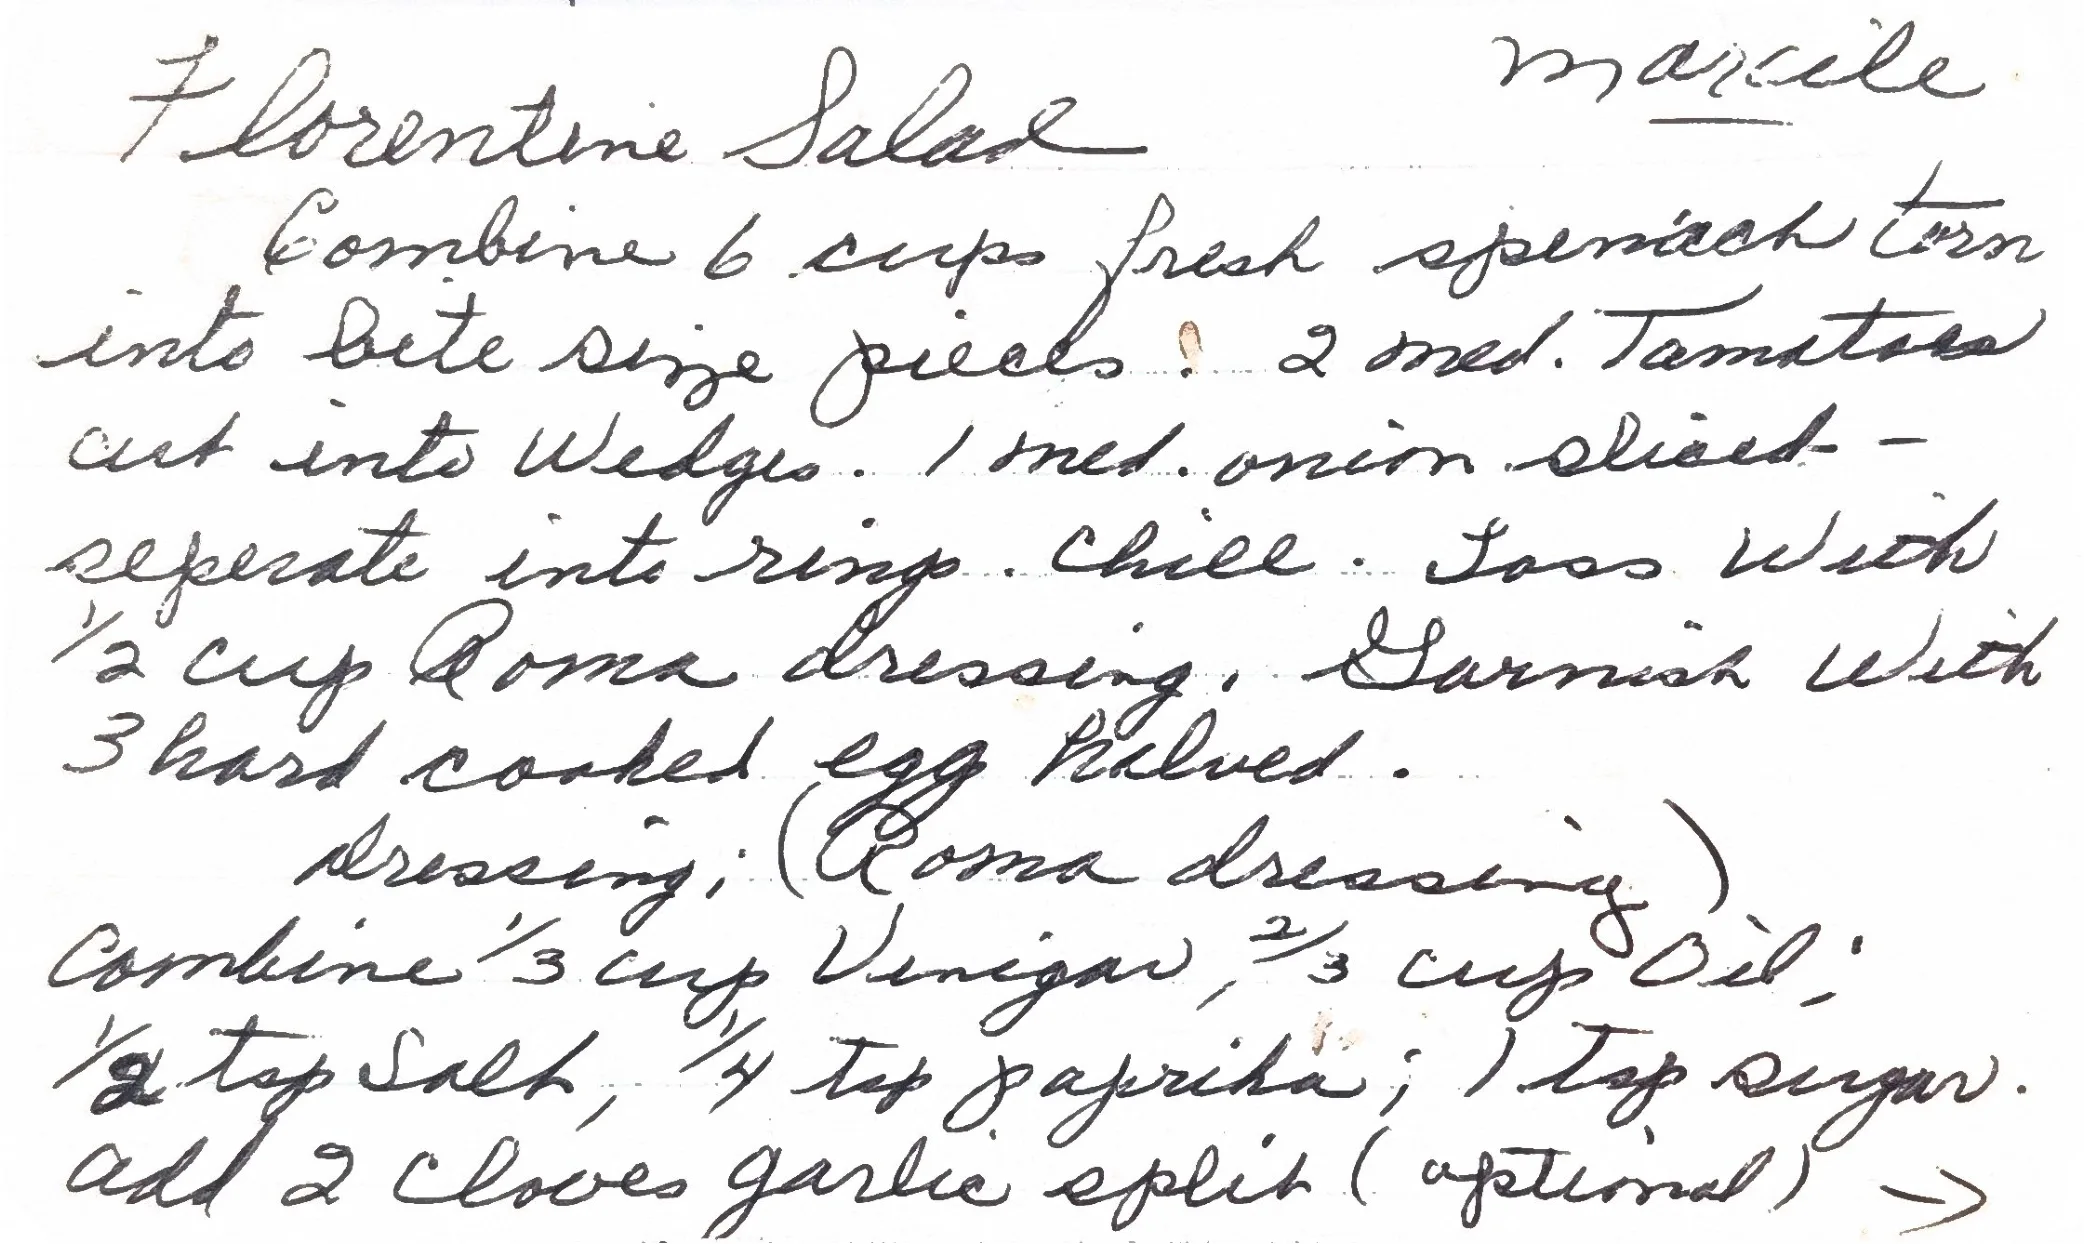 Florentine Salad
Marcile
Combine 6 cups fresh speniach torn
into bite size pieces. 2 med. Tamatoes
cut into Wedges. 1 med. onion sliced -
seperate into rings. Chill. Toss With
1/2 cup Roma dressing. Garnish With
3 hard cooked egg halved.
dressing; (Roma dressing)
Combine 1/3 cup Vinigar, 2/3 cup Oil;
1/2 tsp Salt, 1/4 tsp paprika; 1 Tsp sugar.
add 2 cloves garlic split (optional) →